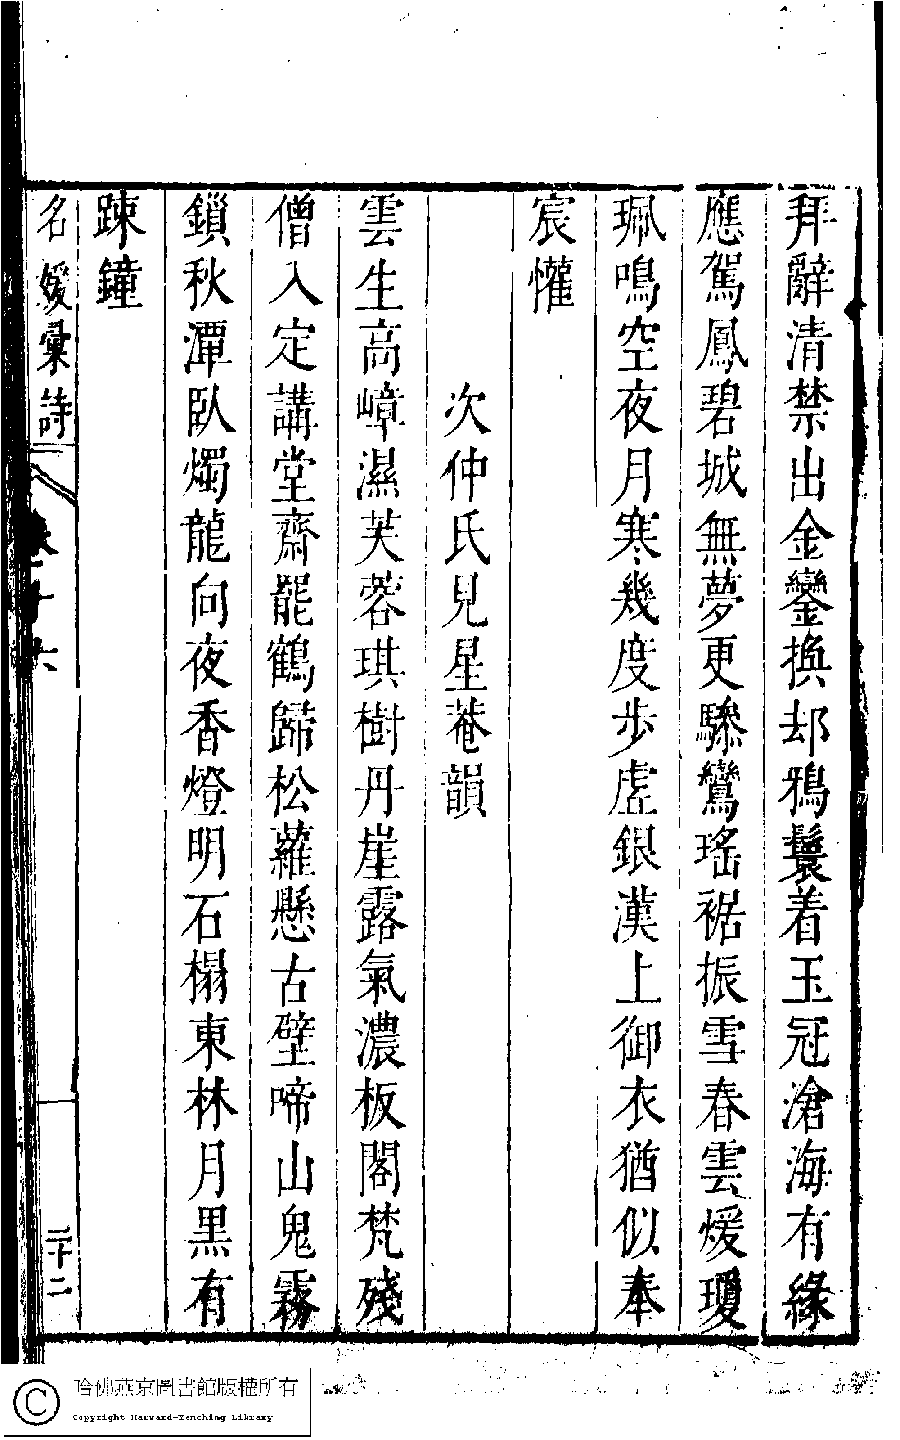 拜辭清禁出金鑾換却鴉鬟着玉冠滄海有緣
應駕鳳碧城無夢更驂鸞瑤裾振雪春雲煖瓊
珮鳴空夜月寒幾度步虛銀漢上御衣猶似奉
宸懽
次仲氏見星菴韻
雲生高嶂濕芙蓉琪樹丹崖露氣濃板閣梵殘
僧入定講堂齋罷鶴歸松蘿懸古壁啼山鬼霧
鎖秋潭臥燭龍向夜香燈明石榻東林月黑有
踈鐘
名媛彙詩
卷十六
二十二
哈佛燕京圖書館版權所有
Copyright Harvard-Yenching Library